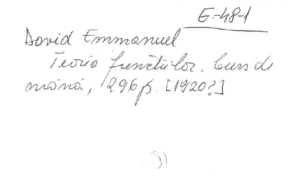 E-481
David Emmanuel
Teoria funcțiilor. Curs de
mână, 296 p. [1920?]